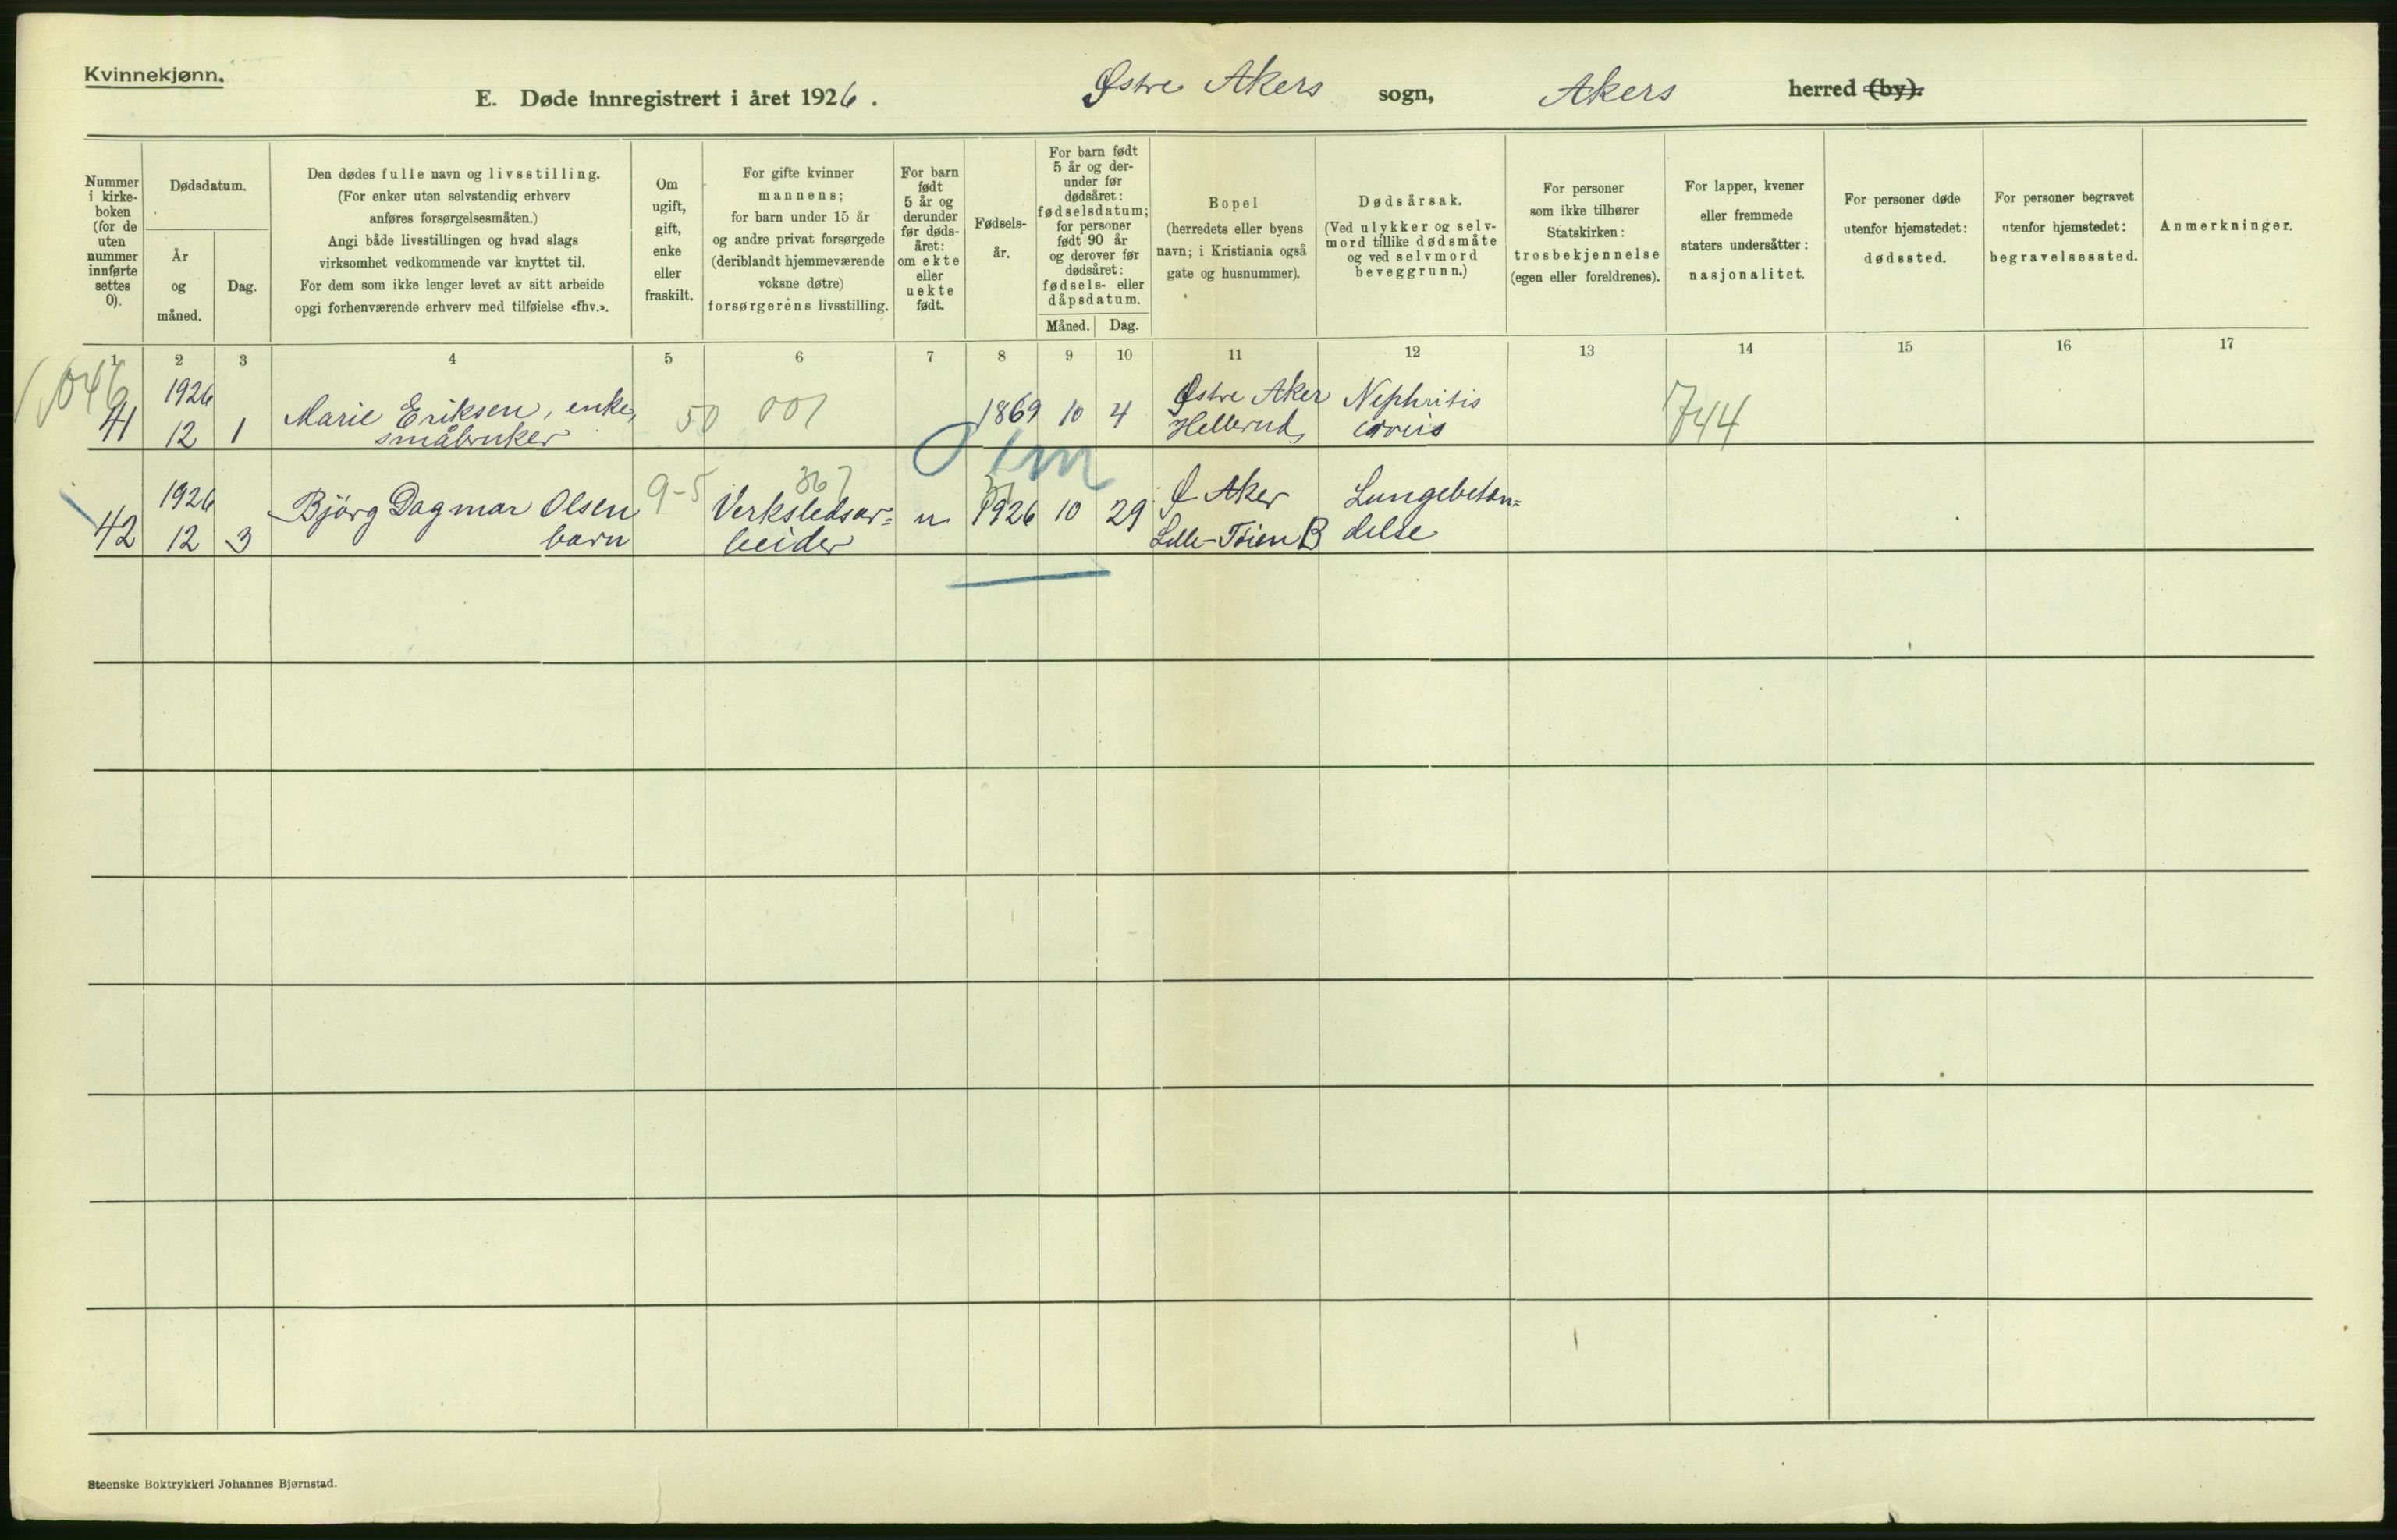 Kvinnekjønn.
E. Døde innregistrert i året 1926. Østre Akers sogn, Akers herred (by).
Nummer i kirke-boken (for de uten nummer innførte settes 0).
Dødsdatum.
År og måned.
Dag.
Den dødes fulle navn og livsstilling.
(For enker uten selvstendig erhverv
anføres forsørgelsesmåten.)
Angi både livsstillingen og hvad slags
virksomhet vedkommende var knyttet til.
For dem som ikke lenger levet av sitt arbeide
opgi forhenværende erhverv med tilføielse «fhv.».
Om
ugift,
gift,
enke
eller
fraskilt.
For gifte kvinner
mannens;
for barn under 15 år
og andre privat forsørgede
(deriblandt hjemmeværende
voksne døtre)
forsørgerens livsstilling.
For barn
født
5 år og
derunder
før døds-
året:
om ekte
eller
uekte
født.
Fødsels-
år.
For barn født
5 år og der-
under før
dødsåret:
fødselsdatum;
for personer
født 90 år
og derover før
dødsåret:
fødsels- eller
dåpsdatum.
Måned. Dag.
Bopel
(herredets eller byens
navn; i Kristiania også
gate og husnummer).
Dødsårsak.
(Ved ulykker og selv-
mord tillike dødsmåte
og ved selvmord
beveggrunn.)
For personer
som ikke tilhører
Statskirken:
trosbekjennelse
(egen eller foreldrenes).
For lapper, kvener
eller fremmede
staters undersåtter:
nasjonalitet.
For personer døde
utenfor hjemstedet:
dødssted.
For personer begravet
utenfor hjemstedet:
begravelsessted.
Anmerkninger.
1 2 3 4 5 6 7 8 9 10 11 12 13 14 15 16 17
41 1926 12 1 Marie Eriksen, enke, småbruker 50 001 1869 10 4 Østre Aker Hellerud Nephritis 744
42 1926 12 3 Bjørg Dagmar Olsen barn 9-5 367 Verkstedsar=beider u 1926 10 29 Ø Aker Lille-Tøien B Lungebetæn=delse
Steenske Boktrykkeri Johannes Bjørnstad.